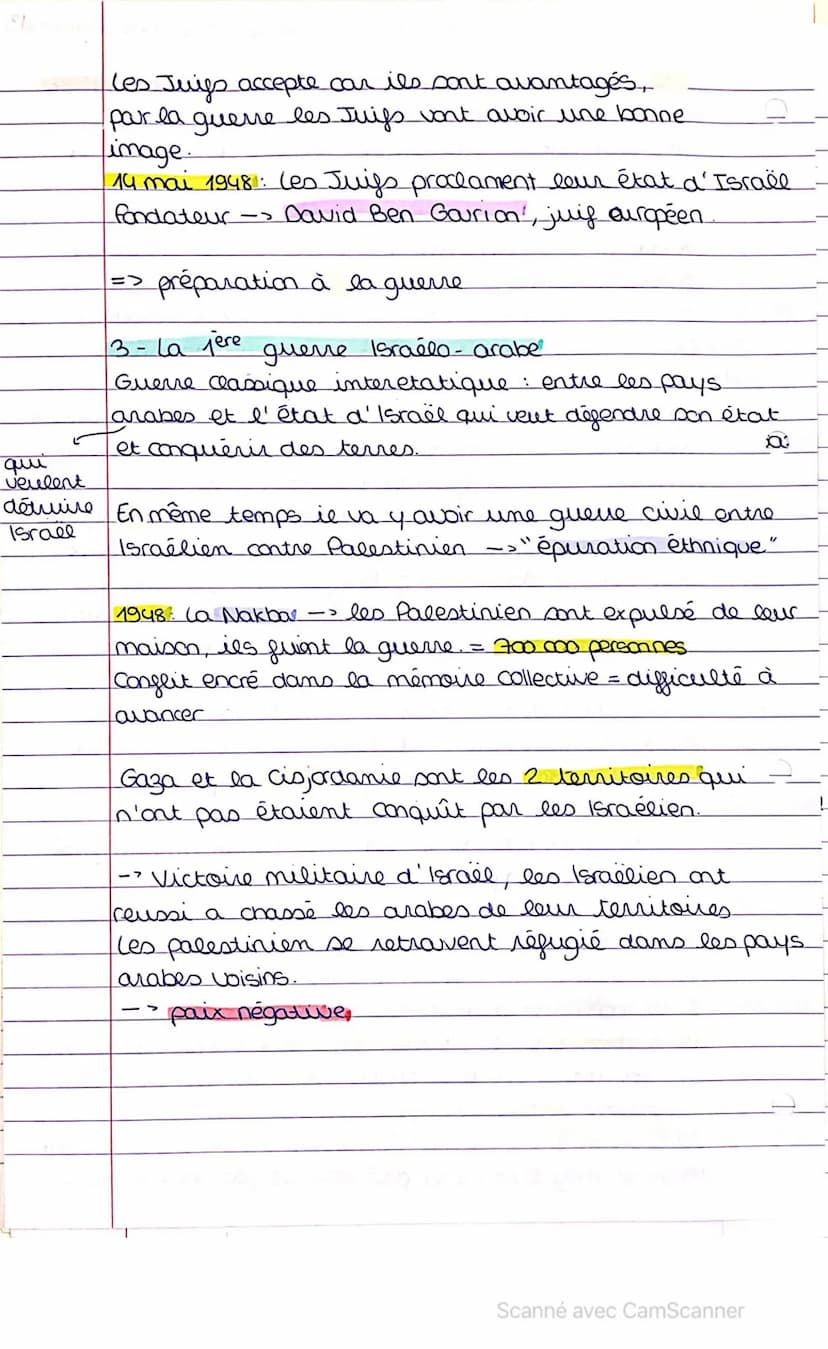 Les Juifs accepte car ils sont avantagés,
par la guerre les Juifs vont avoir une bonne
image.
14 mai 1948 : Les Juifs proclament leur état d'Israël
fondateur -> David Ben Gourion, juif européen.
=> préparation à la guerre
3 - La 1ère guerre Israélo - arabe
Guerre classique interetatique : entre les pays
arabes et l'état d'Israël qui veut défendre son état
et conquérir des terres.
qui
veulent
détruire
Israël
En même temps il va y avoir une guerre civil entre
Israëlien contre Palestinien -> "épuration éthnique"
1948 : La Nakba -> les Palestinien sont expulsé de leur
maison, ils fuient la guerre. = 700 000 personnes
Conflit encré dans la mémoire collective = difficulté à
avancer
Gaza et la Cisjordanie sont les 2 territoires qui
n'ont pas étaient conquît par les Israélien.
-> Victoire militaire d'Israël, les Israëlien ont
reussi a chassé les arabes de leur territoires
Les palestinien se retrouvent réfugié dans les pays
arabes voisins.
-> paix négative,
Scanné avec CamScanner